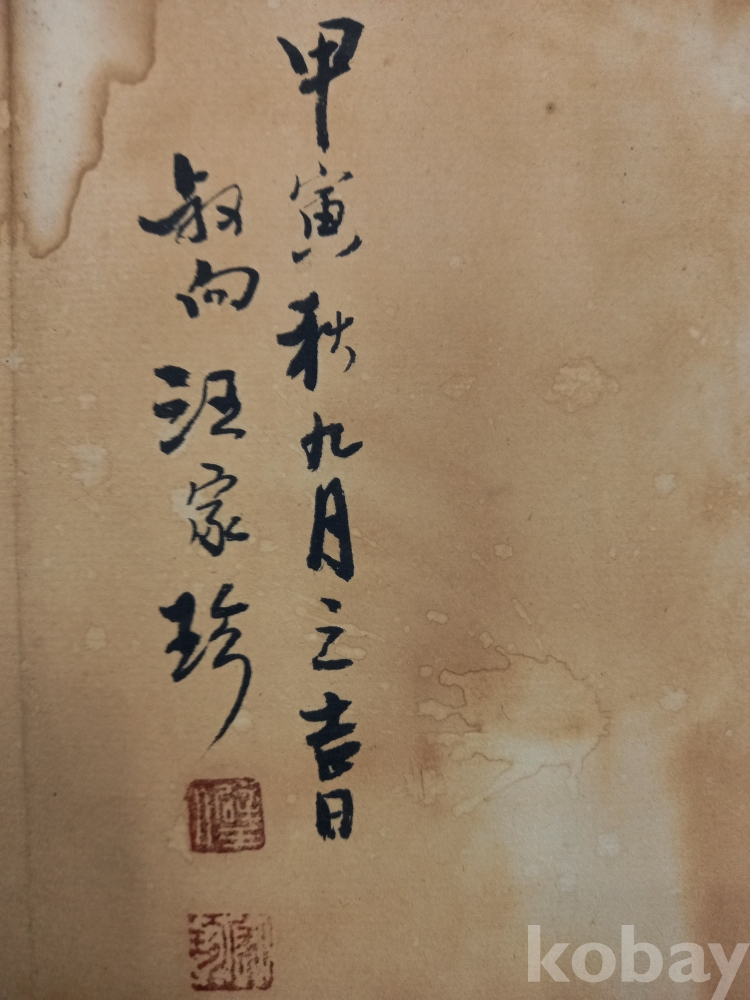 甲寅秋九月之吉日
叔向汪家珍
kobay